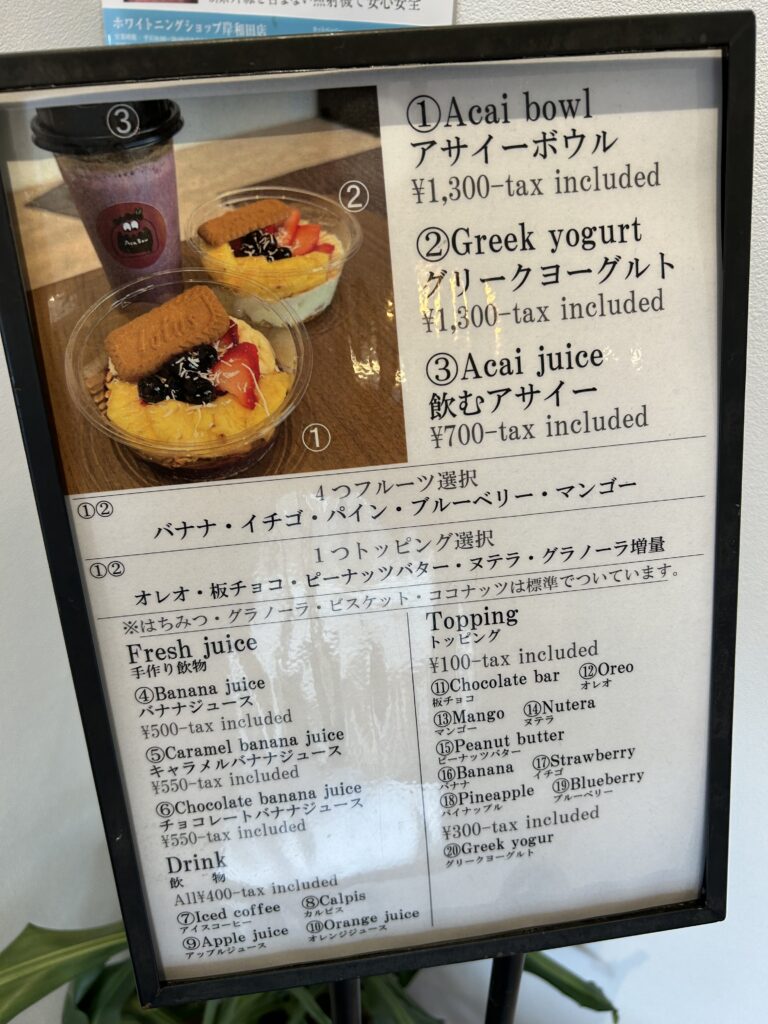 ホワイトニングショップ岸和田店
③
②
①
Lotus
①Acai bowl
アサイーボウル
¥1,300-tax included
②Greek yogurt
グリークヨーグルト
¥1,300-tax included
③Acai juice
飲むアサイー
¥700-tax included
①②
4つフルーツ選択
バナナ・イチゴ・パイン・ブルーベリー・マンゴー
①②
1つトッピング選択
オレオ・板チョコ・ピーナッツバター・ヌテラ・グラノーラ増量
※はちみつ・グラノーラ・ビスケット・ココナッツは標準でついています。
Fresh juice
手作り飲物
④Banana juice
バナナジュース
¥500-tax included
⑤Caramel banana juice
キャラメルバナナジュース
¥550-tax included
⑥Chocolate banana juice
チョコレートバナナジュース
¥550-tax included
Drink
飲 物
All¥400-tax included
⑦Iced coffee ⑧Calpis
アイスコーヒー カルピス
⑨Apple juice ⑩Orange juice
アップルジュース オレンジジュース
Topping
トッピング
¥100-tax included
⑪Chocolate bar ⑫Oreo
板チョコ オレオ
⑬Mango ⑭Nutera
マンゴー ヌテラ
⑮Peanut butter
ピーナッツバター
⑯Banana ⑰Strawberry
バナナ イチゴ
⑱Pineapple ⑲Blueberry
パイナップル ブルーベリー
¥300-tax included
⑳Greek yogur
グリークヨーグルト